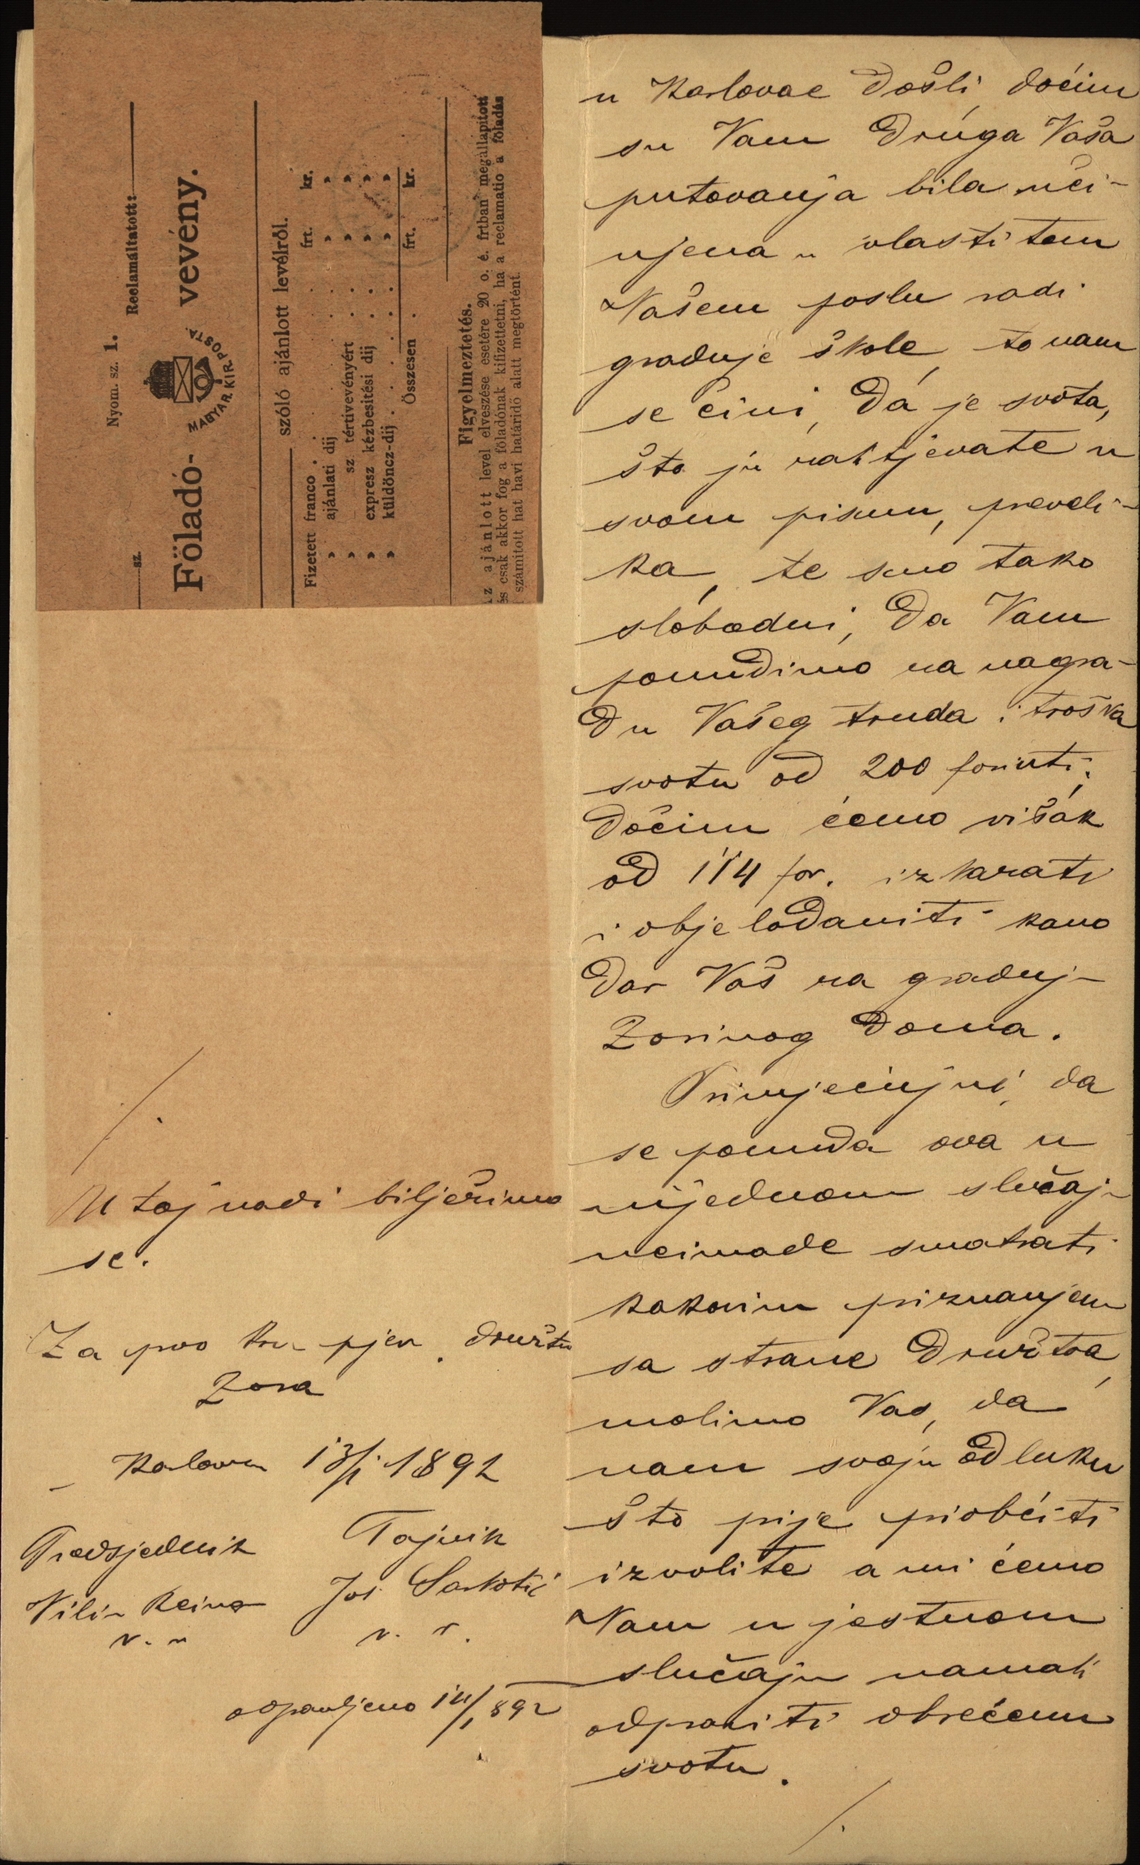 u Karlovac došli, dočim
su Vam druga Vaša
putovanja bila uči-
njena u vlastitom
Vašem poslu radi
gradnje škole, to nam
se čini, da je svota,
što ju zahtjevate u
svom pismu, preveli-
ka, te smo tako
slobodni, da Vam
ponudimo na nagra-
du Vašeg truda i troška
svotu od 200 forinti,
dočim ćemo višak
od 114 for. izkazati
i objelodaniti kano
dar Vaš na gradnju
Zorinog doma.
Primjećujuć, da
se ponuda ova u
nijednom slučaju
neimade smatrati
kakovim priznanjem
sa strane družtva,
molimo Vas, da
nam svoju odluku
što prije priobćiti
izvolite a mi ćemo
Vam u jestnom
slučaju namah
odpraviti obrećenu
svotu.
U toj nadi bilježimo
se.
Za prvo hrv. pjev. družtvo
Zora
Karlovac 13/1 1892
Predsjednik Tajnik
Vilim Reiner Jos Sarkotić
v. r. v. r.
odpravljeno 14/1 892
Nyom. sz. 1. Reclamáltatott:
sz.
Föladó- vevény.
MAGYAR KIR. POSTA
szóló ajánlott levélről.
Fizetett franco . . . frt. kr.
» ajánlati dij . . . » »
» sz tértivevényért » »
» expresz kézbesitési dij . . » »
» küldöncz-dij . . . » »
Összesen . frt. kr.
Figyelmeztetés.
Az ajánlott levél elveszése esetére 20 o. é. frtban megállapitott
és csak akkor fog a föladónak kifizettetni, ha a reclamatio a föladás
számitott hat havi határidő alatt megtörtént.